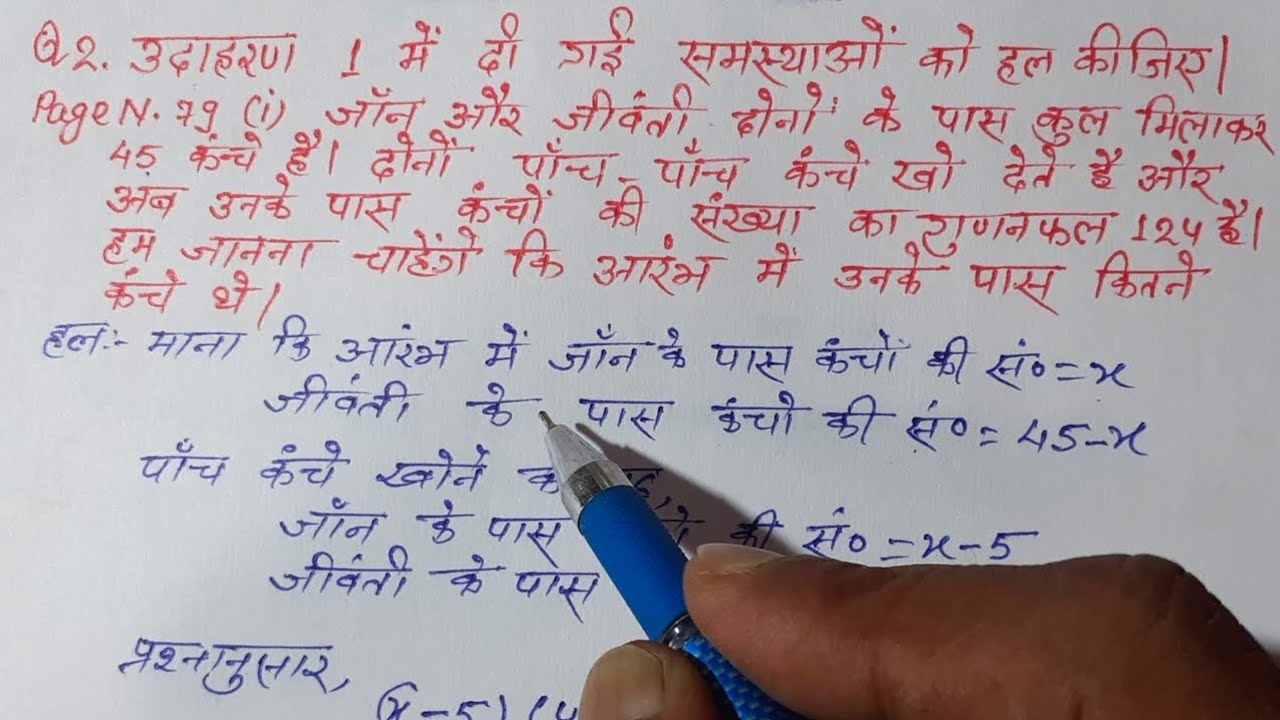 Q2. उदाहरण 1 में दी गई समस्याओं को हल कीजिए।
Page N. 79 (i) जॉन और जीवंती दोनों के पास कुल मिलाकर
45 कंन्चे है। दोनों पाँच-पाँच कंचे खो देते है और
अब उनके पास कंन्चों की संख्या का गुणनफल 124 है।
हम जानना चाहेंगे कि आरंभ में उनके पास कितने
कंचे थे।
हल:- माना कि आरंभ में जॉन के पास कंचों की सं० = x
जीवंती के पास कंचो की सं० = 45-x
पाँच कंचे खोने
जॉन के पास की सं० = x-5
जीवंती के पास
प्रश्नानुसार,
(x-5) (4